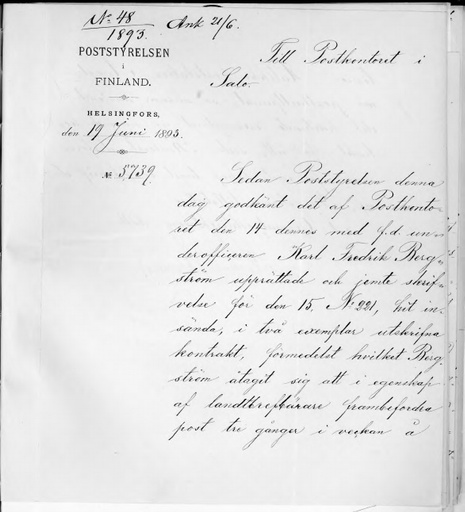 No 48
1893.
Ank 21/6.
POSTSTYRELSEN
i
FINLAND.
HELSINGFORS,
den 19 Juni 1893.
№ 5739.
Till Postkontoret i
Salo.
Sedan Poststyrelsen denna
dag godkänt det af Postkonto-
ret den 14 dennes med f.d. un-
derofficeren Karl Fredrik Berg-
ström upprättade och jemte skrif-
velse för den 15, No 221, hit in-
sända, i två exemplar utskrifna
kontrakt, förmedelst hvilket Berg-
ström åtagit sig att i egenskap
af landtbrefbärare frambefordra
post tre gånger i veckan å